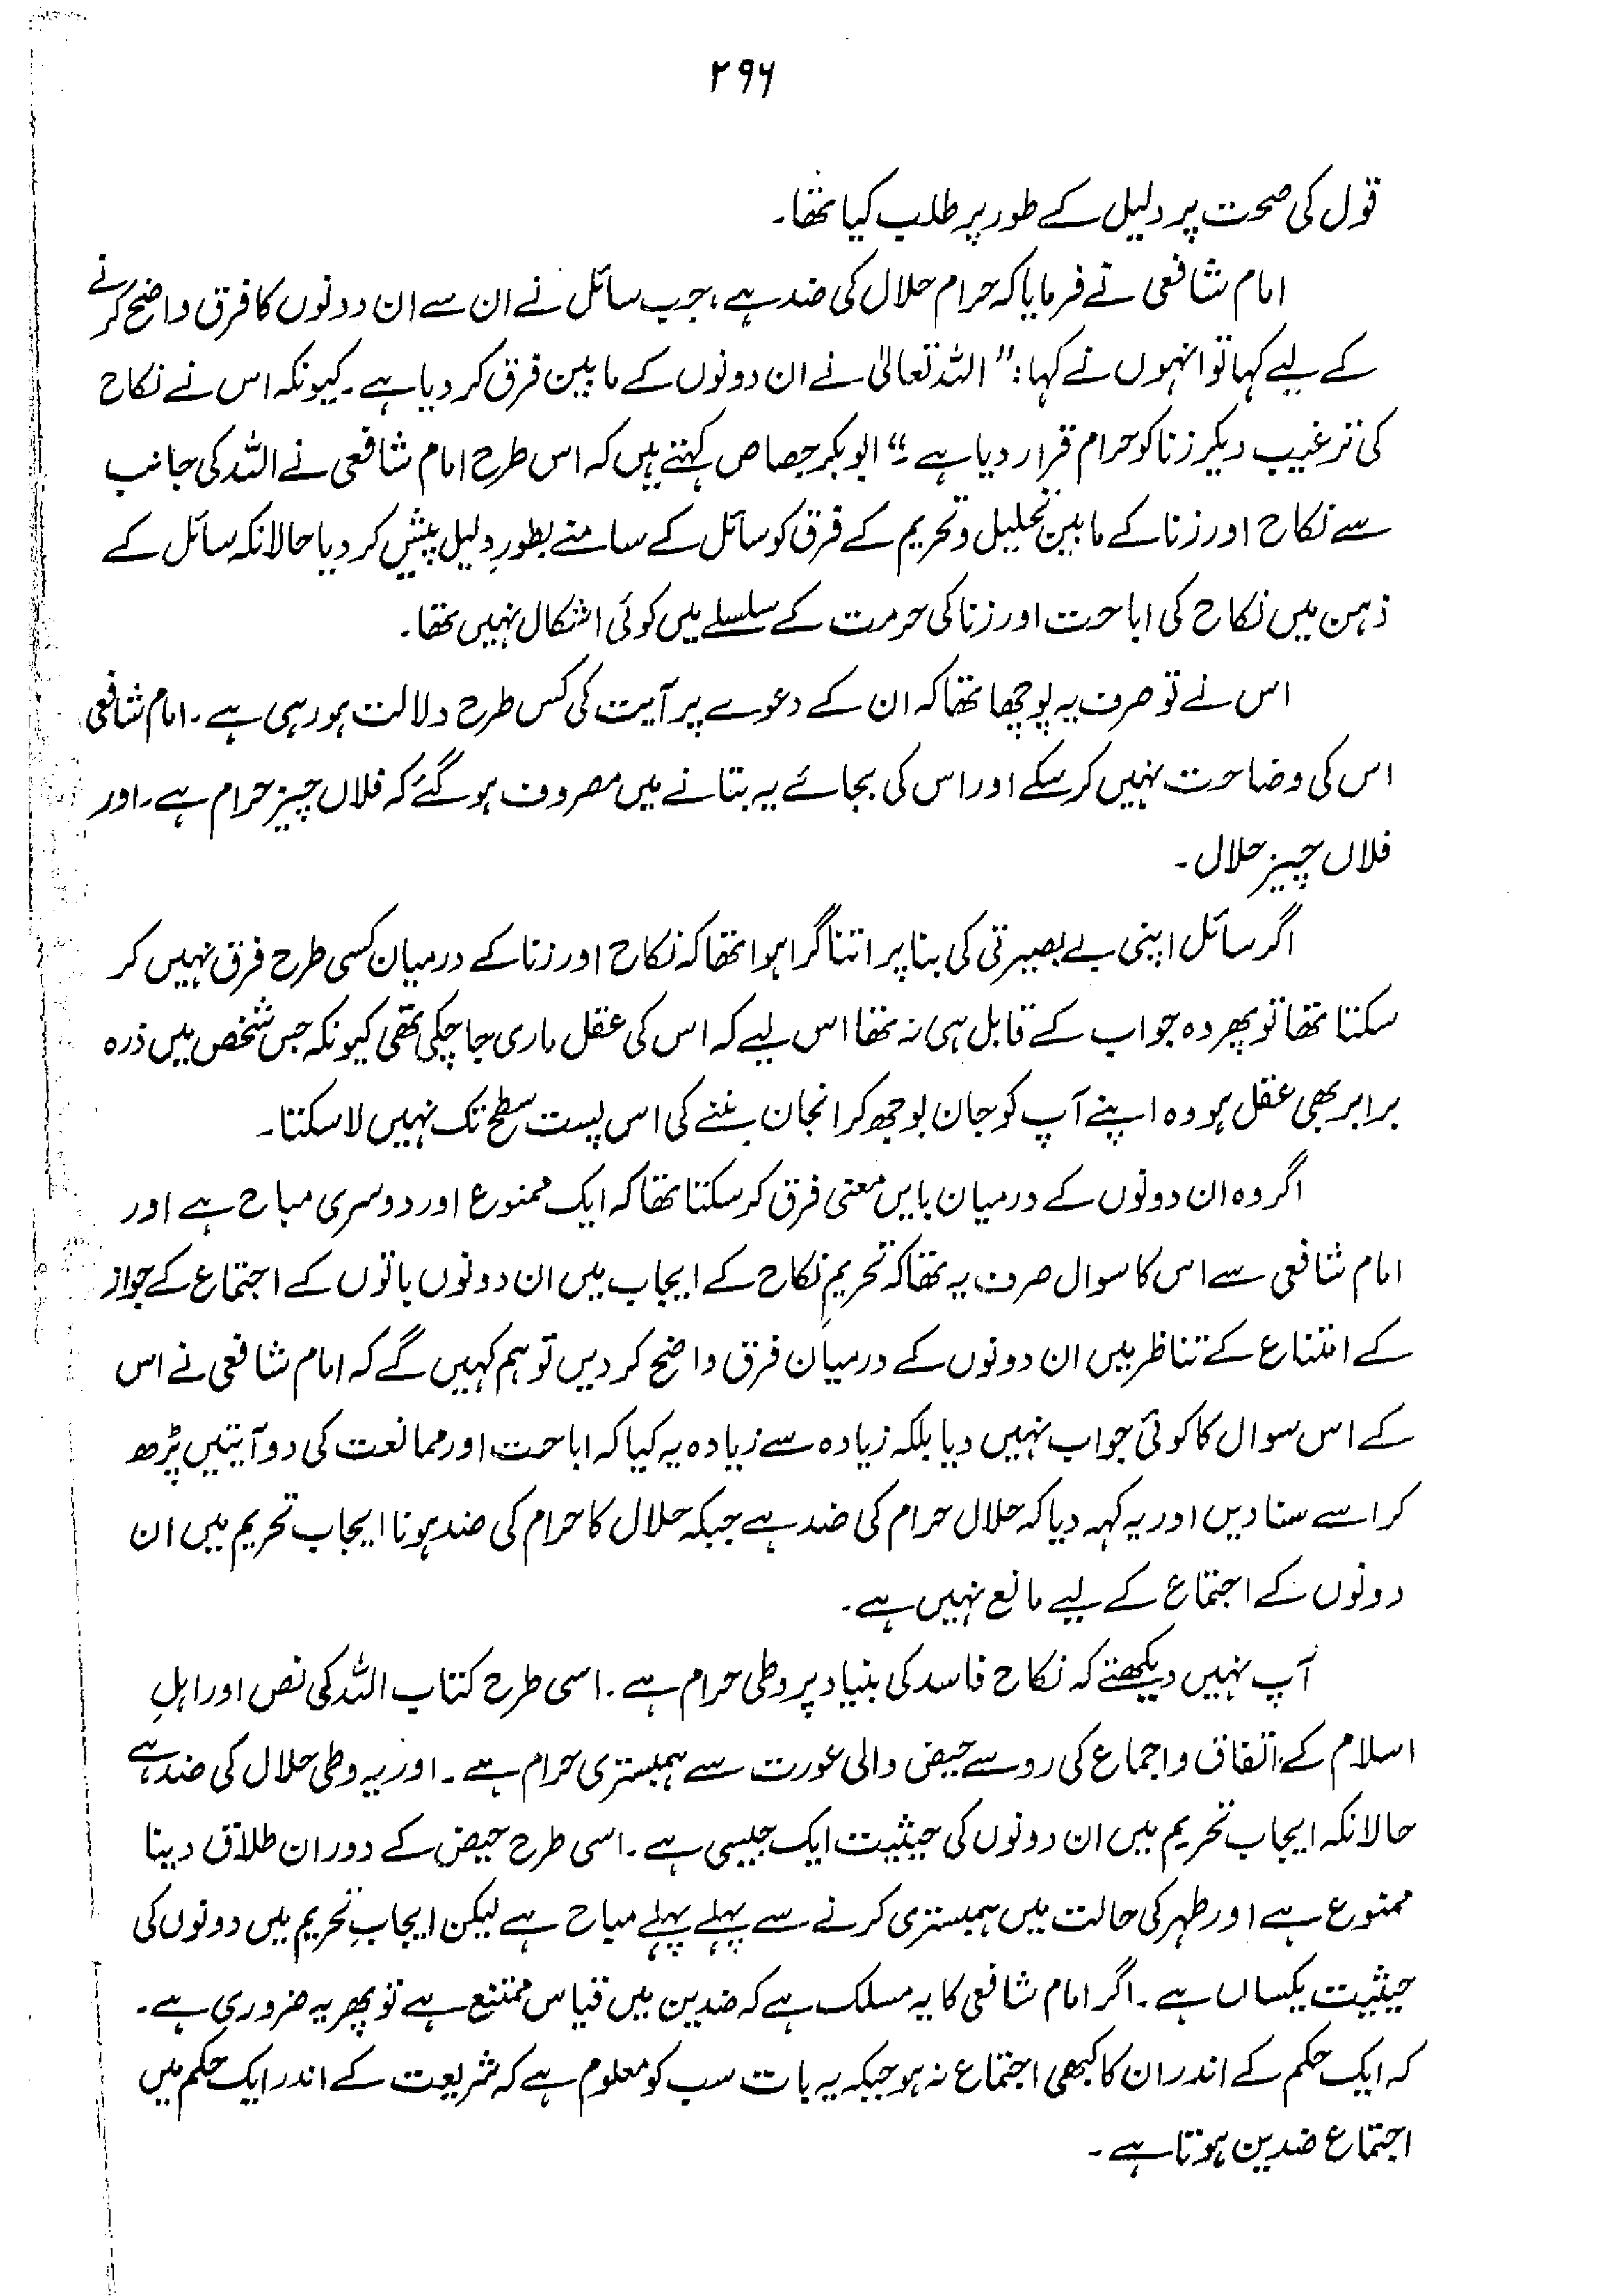 ۲۹۶
قول کی صحت پر دلیل کے طور پر طلب کیا تھا۔
امام شافعی نے فرمایا کہ حرام حلال کی ضد ہے، جب سائل نے ان سے ان دونوں کا فرق واضح کرنے
کے لیے کہا تو انہوں نے کہا: "اللہ تعالیٰ نے ان دونوں کے مابین فرق کر دیا ہے۔ کیونکہ اس نے نکاح
کی ترغیب دیکر زنا کو حرام قرار دیا ہے۔" ابوبکر جصاص کہتے ہیں کہ اس طرح امام شافعی نے اللہ کی جانب
سے نکاح اور زنا کے مابین تحلیل و تحریم کے فرق کو سائل کے سامنے بطورِ دلیل پیش کر دیا حالانکہ سائل کے
ذہن میں نکاح کی اباحت اور زنا کی حرمت کے سلسلے میں کوئی اشکال نہیں تھا۔
اس نے تو صرف یہ پوچھا تھا کہ ان کے دعوے پر آیت کی کس طرح دلالت ہو رہی ہے۔ امام شافعی
اس کی وضاحت نہیں کر سکے اور اس کی بجائے یہ بتانے میں مصروف ہو گئے کہ فلاں چیز حرام ہے۔ اور
فلاں چیز حلال۔
اگر سائل اپنی بے بصیرتی کی بنا پر اتنا گرا ہوا تھا کہ نکاح اور زنا کے درمیان کسی طرح فرق نہیں کر
سکتا تھا تو پھر وہ جواب کے قابل ہی نہ تھا اس لیے کہ اس کی عقل ماری جا چکی تھی کیونکہ جس شخص میں ذرہ
برابر بھی عقل ہو وہ اپنے آپ کو جان بوجھ کر انجان بننے کی اس پست سطح تک نہیں لا سکتا۔
اگر وہ ان دونوں کے درمیان بایں معنی فرق کر سکتا تھا کہ ایک ممنوع اور دوسری مباح ہے اور
امام شافعی سے اس کا سوال صرف یہ تھا کہ تحریمِ نکاح کے ایجاب میں ان دونوں باتوں کے اجتماع کے جواز
کے امتناع کے تناظر میں ان دونوں کے درمیان فرق واضح کر دیں تو ہم کہیں گے کہ امام شافعی نے اس
کے اس سوال کا کوئی جواب نہیں دیا بلکہ زیادہ سے زیادہ یہ کیا کہ اباحت اور ممانعت کی دو آیتیں پڑھ
کر اسے سنا دیں اور یہ کہہ دیا کہ حلال حرام کی ضد ہے جبکہ حلال کا حرام کی ضد ہونا ایجاب تحریم میں ان
دونوں کے اجتماع کے لیے مانع نہیں ہے۔
آپ نہیں دیکھتے کہ نکاح فاسد کی بنیاد پر وطی حرام ہے۔ اسی طرح کتاب اللہ کی نص اور اہلِ
اسلام کے اتفاق و اجماع کی رو سے حیض والی عورت سے ہمبستری حرام ہے۔ اور یہ وطی حلال کی ضد ہے
حالانکہ ایجاب تحریم میں ان دونوں کی حیثیت ایک جیسی ہے۔ اسی طرح حیض کے دوران طلاق دینا
ممنوع ہے اور طہر کی حالت میں ہمبستری کرنے سے پہلے پہلے مباح ہے لیکن ایجابِ تحریم میں دونوں کی
حیثیت یکساں ہے۔ اگر امام شافعی کا یہ مسلک ہے کہ ضدین میں قیاس ممتنع ہے تو پھر یہ ضروری ہے۔
کہ ایک حکم کے اندر ان کا کبھی اجتماع نہ ہو جبکہ یہ بات سب کو معلوم ہے کہ شریعت کے اندر ایک حکم میں
اجتماع ضدین ہوتا ہے۔